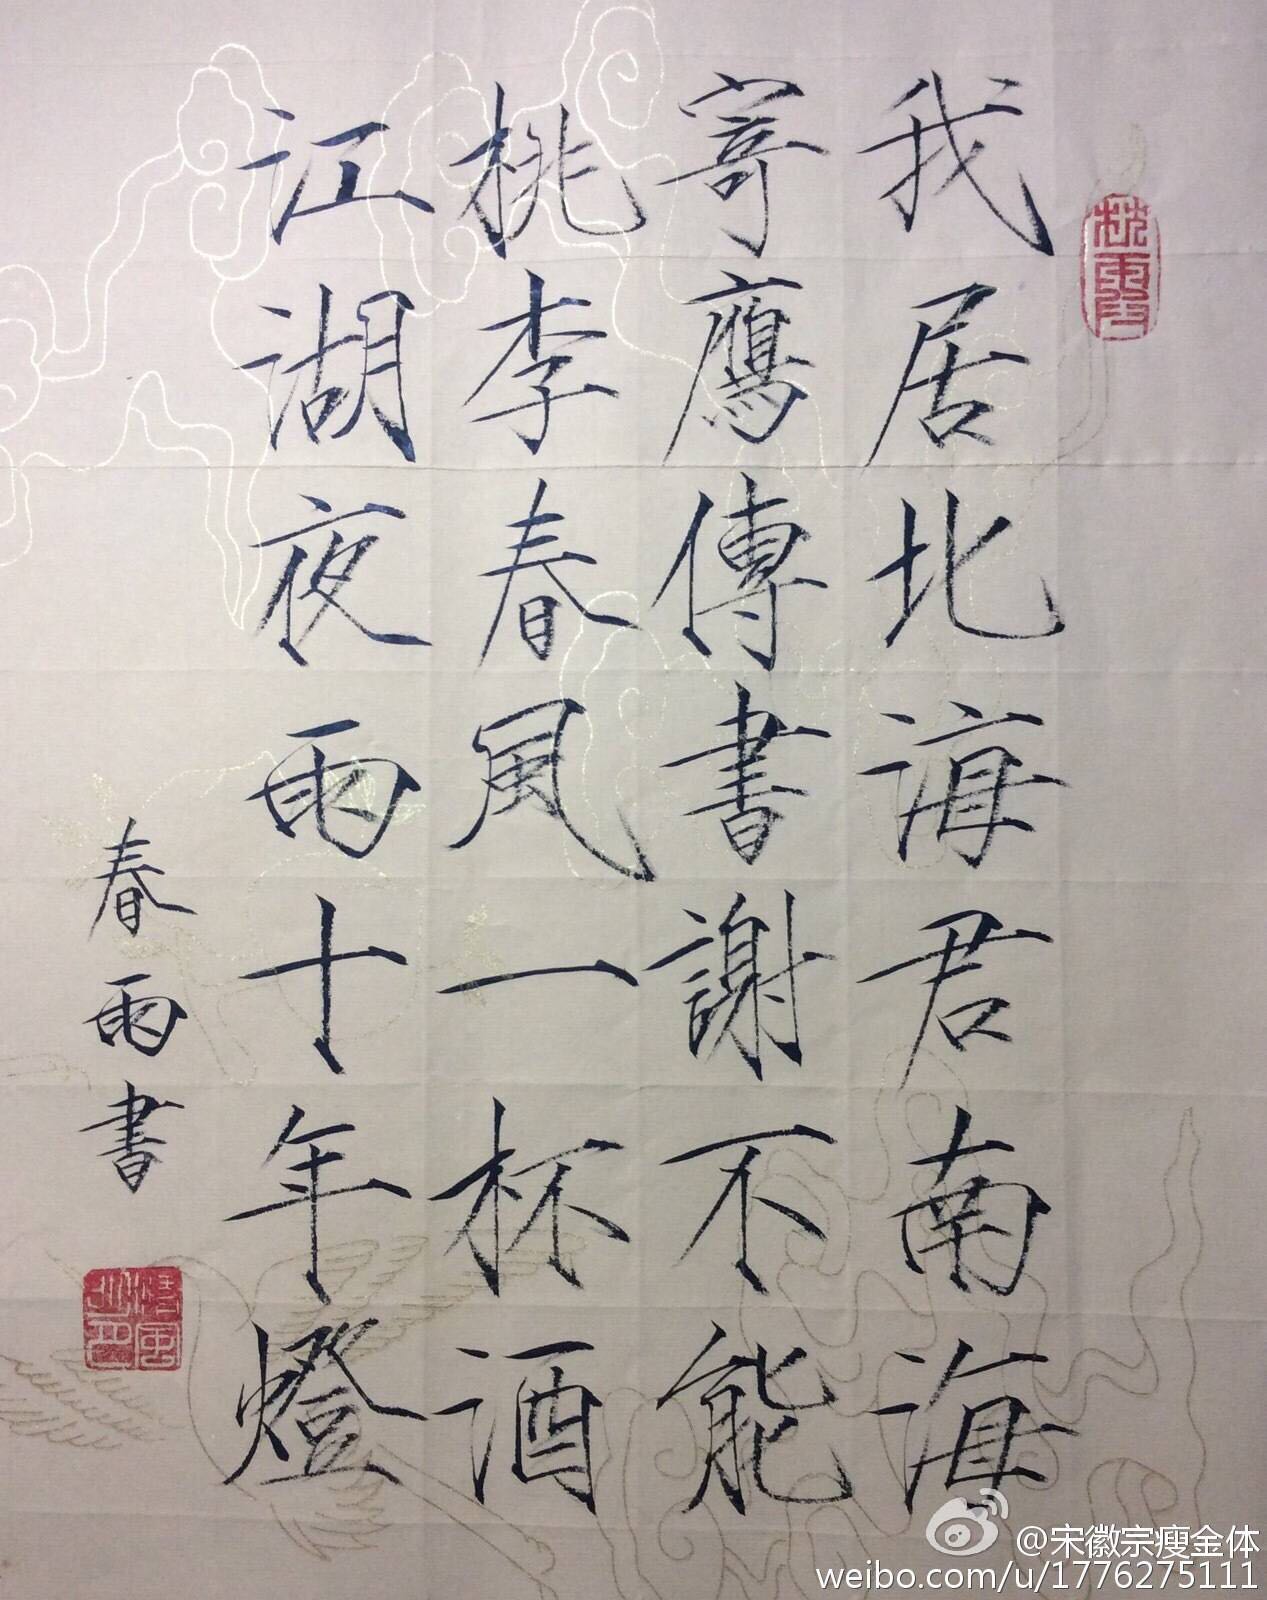 我居北海君南海
寄鴈傳書謝不能
桃李春風一杯酒
江湖夜雨十年燈
春雨書
@宋徽宗瘦金体
weibo.com/u/1776275111